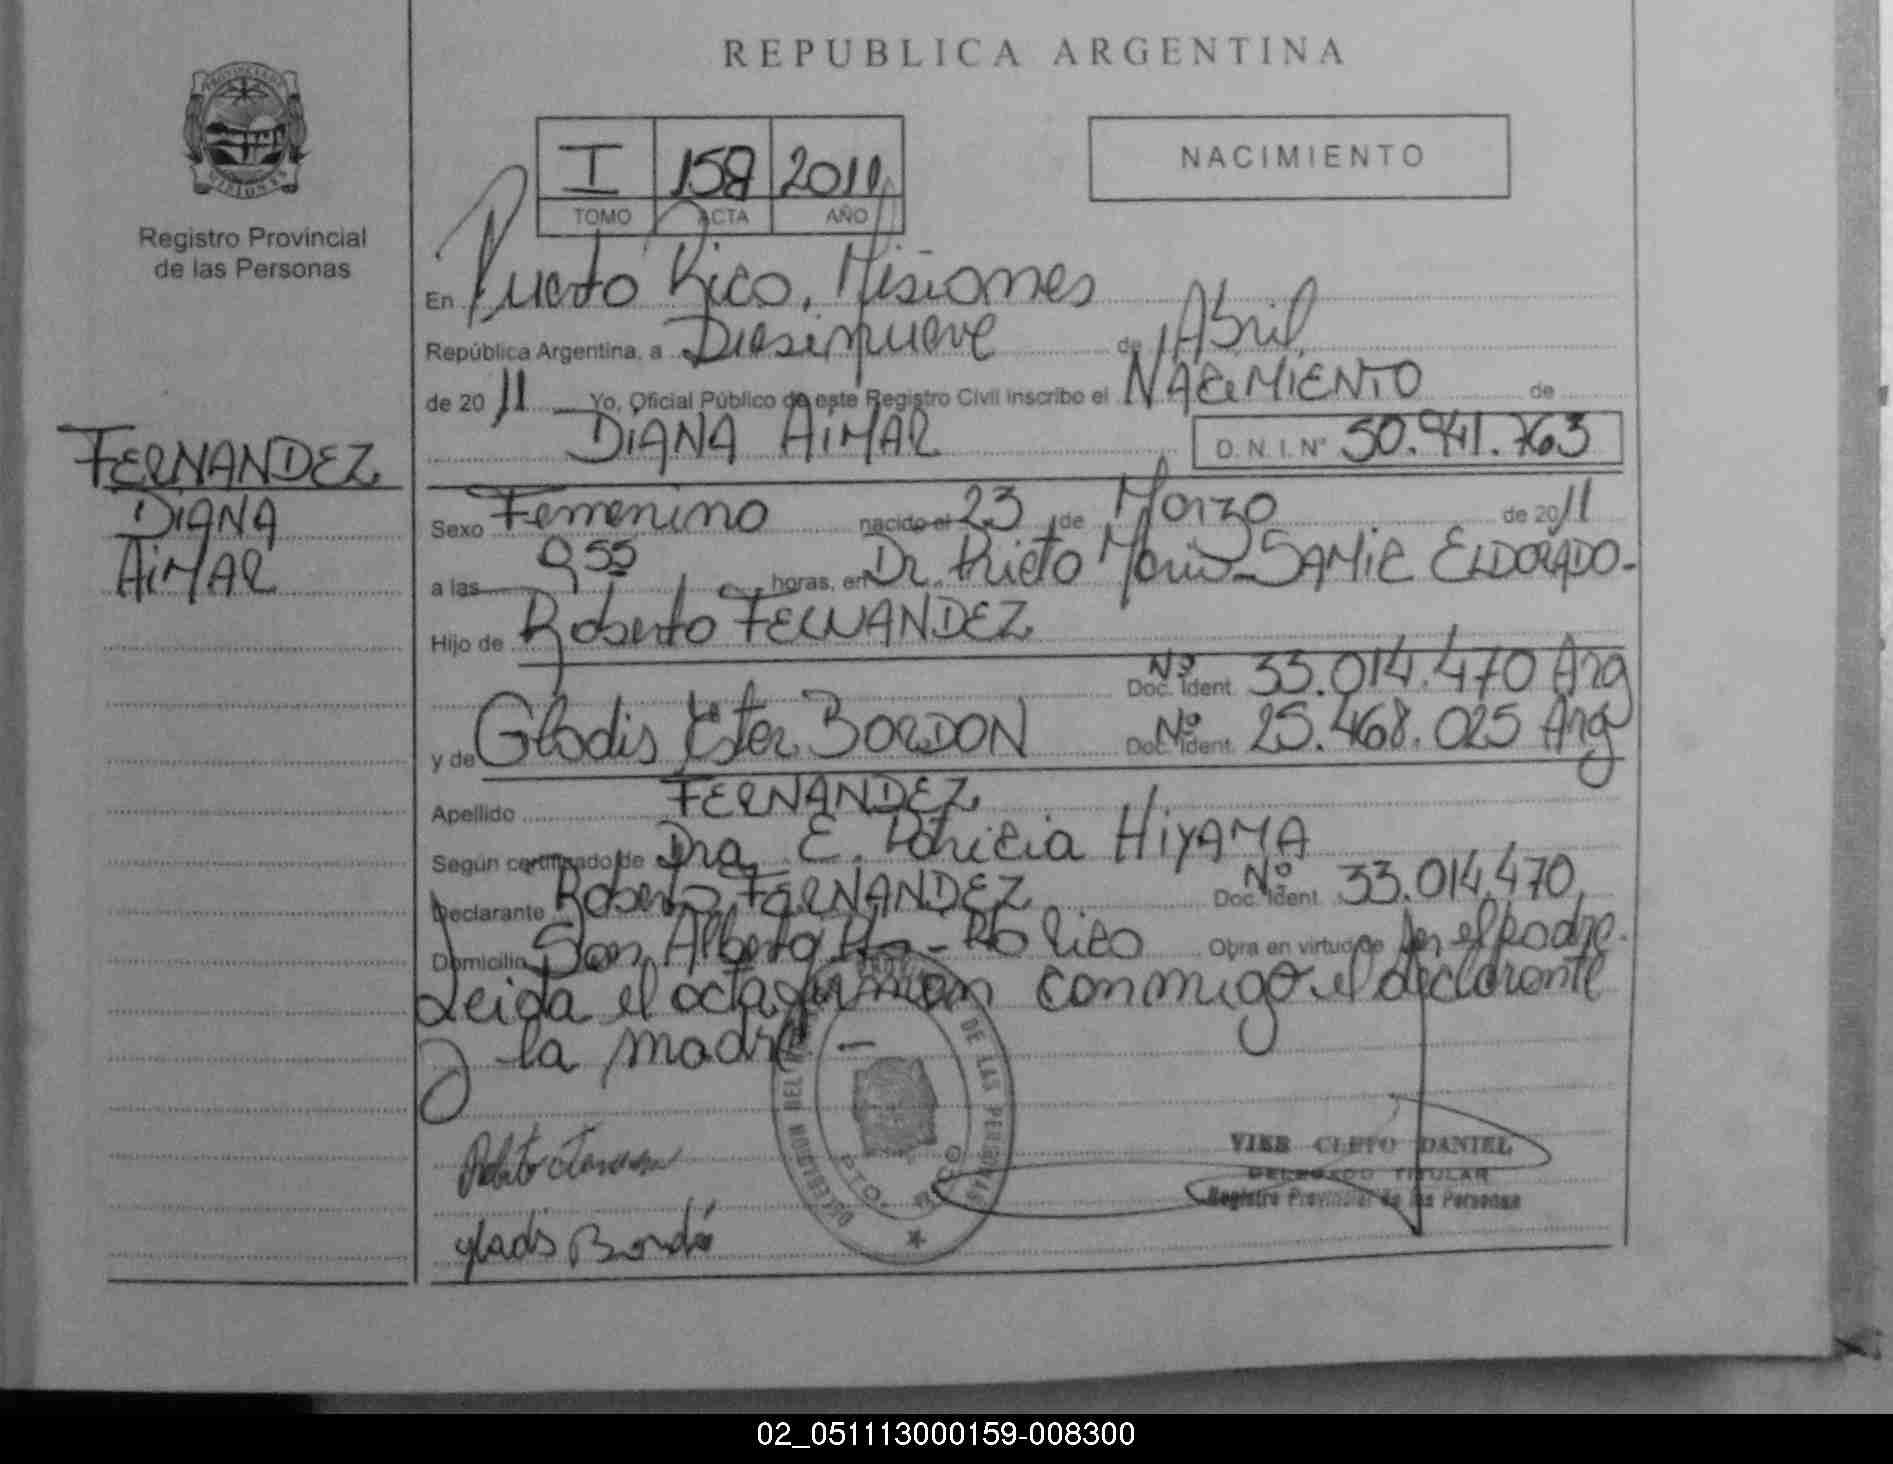 REPUBLICA ARGENTINA
PROVINCIA DE
MISIONES
Registro Provincial
de las Personas
I 158 2011
TOMO ACTA AÑO
NACIMIENTO
En Puerto Rico, Misiones
República Argentina, a Diesinueve de Abril
de 20 11 Yo, Oficial Público de este Registro Civil inscribo el NACIMIENTO de
DIANA AIMAR D.N.I.Nº 50.941.763
FERNANDEZ
DIANA
AIMAR
Sexo Femenino nacido el 23 de Marzo de 20 11
a las 9 55 horas, en Dr. Prieto Mario SAMIC ELDORADO-
Hijo de Roberto FERNANDEZ
Nº Doc. Ident. 33.014.470 Arg
y de Gladis Ester BORDON Nº Doc. Ident. 25.468.025 Arg
Apellido FERNANDEZ
Según certificado de Dra. E. Patricia HIYAMA
Declarante Roberto FERNANDEZ Nº Doc. Ident. 33.014.470
Domicilio San Alberto Pto - Pto Rico Obra en virtud de Ser el padre.
Leida el acta firman conmigo el declarante
y la madre -
DELEGACION DEL DE LAS PERSONAS
PTO. RICO
Gladis Bordón
VIER CLETO DANIEL
DELEGADO TITULAR
Registro Provincial de las Personas
02_051113000159-008300